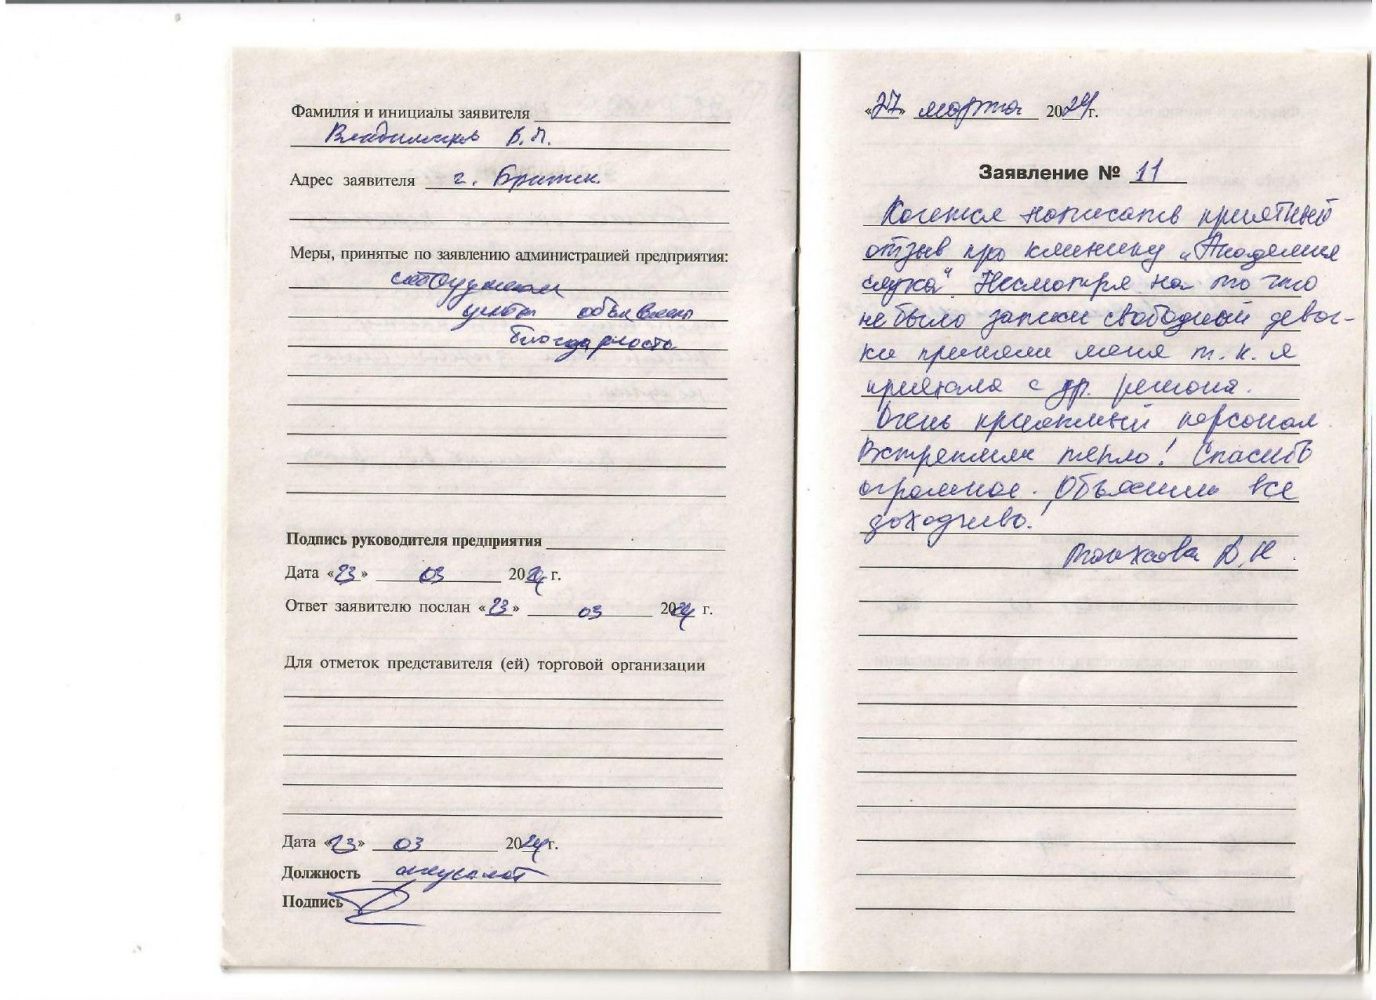 Фамилия и инициалы заявителя
В.П.
Адрес заявителя г. Братск
Меры, принятые по заявлению администрацией предприятия:
сотрудникам
объявлена
благодарность
Подпись руководителя предприятия
Дата «23» 03 2024 г.
Ответ заявителю послан «23» 03 2024 г.
Для отметок представителя (ей) торговой организации
Дата «23» 03 2024 г.
Должность
Подпись
«27» марта 2024 г.
Заявление № 11
Хочется написать приятный
отзыв про клинику „Академия
слуха". Несмотря на то что
не было записи свободной девоч-
ки приняли меня т.к. я
приехала с др. региона.
Очень приятный персонал.
Встретили тепло! Спасибо
огромное. Объяснили все
доходчиво.